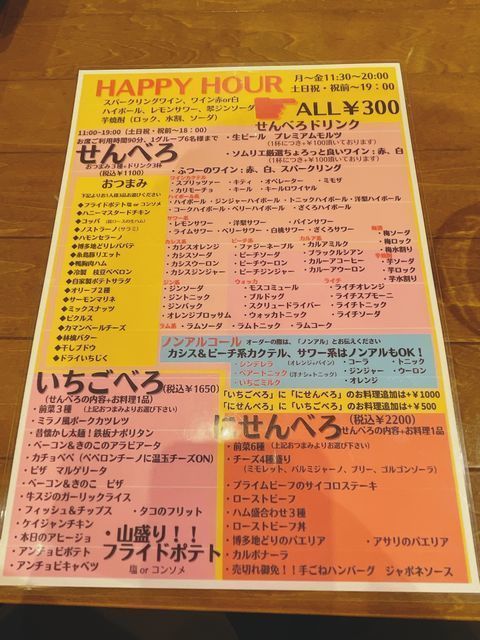 HAPPY HOUR
月～金11:30～20:00
土日祝・祝前～19：00
スパークリングワイン、ワイン赤or白
ハイボール、レモンサワー、翠ジンソーダ
芋焼酎（ロック、水割、ソーダ）
ALL￥300
11:00~19:00（土日祝・祝前～18：00）
お席ご利用時間90分、1グループ6名様まで
せんべろ
おつまみ3種+ドリンク3杯
(税込￥1100)
おつまみ
下記よりお1人様3品お選び下さい
◆フライドポテト塩 or コンソメ
◆ハニーマスタードチキン
◆コッパ
◆ノストラーノ(サラミ)
◆ハモンセラーノ
◆博多地どりレバパテ
◆糸島豚リエット
◆鴨胸肉ハム
◆冷製 枝豆ペペロン
◆自家製ポテトサラダ
◆オリーブ２種
◆サーモンマリネ
◆ミックスナッツ
◆ピクルス
◆カマンベールチーズ
◆林檎バター
◆干しブドウ
◆ドライいちじく
せんべろドリンク
・生ビール プレミアムモルツ
(1杯につき+￥100頂いております)
・ソムリエ厳選ちょろっと良いワイン：赤、白
(1杯につき+￥100頂いております)
・ふつーのワイン：赤、白、スパークリング
ワインカクテル
・スプリッツァー ・キティ ・オペレーター ・ミモザ
・カリモーチョ ・キール ・キールロワイヤル
ハイボール系
・ハイボール ・ジンジャーハイボール ・トニックハイボール ・洋梨ハイボール
・コークハイボール ・ベリーハイボール ・ざくろハイボール
サワー系
・レモンサワー ・洋梨サワー ・パインサワー
・ライムサワー ・ベリーサワー ・白桃サワー ・ざくろサワー
カシス系
・カシスオレンジ
・カシスソーダ
・カシスウーロン
・カシスジンジャー
ピーチ系
・ファジーネーブル
・ピーチソーダ
・ピーチウーロン
・ピーチジンジャー
カルーア系
・カルアミルク
・ブラックルシアン
・カルアコーヒー
・カルアウーロン
梅酒
・梅ソーダ
・梅ロック
・梅水割り
芋焼酎
・芋ソーダ
・芋ロック
・芋水割り
ジン系
・ジンソーダ
・ジントニック
・ジンバック
・オレンジブロッサム
ウォッカ
・モスコミュール
・ブルドッグ
・スクリュードライバー
・ウォッカトニック
ライチ
・ライチオレンジ
・ライチスプモーニ
・ライチトニック
・ライチソーダ
ラム系
・ラムソーダ ・ラムトニック ・ラムコーク
ノンアルコール オーダーの際は、「ノンアル」とお伝えください
カシス＆ピーチ系カクテル、サワー系はノンアルもOK！
・シンデレラ（オレンジ+パイン）
・ペアートニック（洋ナシ+トニック）
・いちごミルク
・コーラ ・トニック
・ジンジャー ・ウーロン
・オレンジ
「いちごべろ」に「にせんべろ」のお料理追加は+￥1000
「にせんべろ」に「いちごべろ」のお料理追加は+￥500
いちごべろ(税込￥1650)
（せんべろの内容+お料理1品）
・前菜３種 （上記おつまみよりお選び下さい）
・ミラノ風ポークカツレツ
・昔懐かし太麺！鉄板ナポリタン
・ベーコン＆きのこのアラビアータ
・カチョペペ（ペペロンチーノに温玉チーズON）
・ピザ マルゲリータ
・ベーコン＆きのこ ピザ
・キスジのガーリックライス
・フィッシュ＆チップス ・タコのフリット
・ケイジャンチキン
・本日のアヒージョ
・アンチョビポテト
・アンチョビキャベツ
・山盛り！！
フライドポテト
塩 or コンソメ
にせんべろ(税込￥2200)
せんべろの内容+お料理1品
・前菜6種 （上記おつまみよりお選び下さい）
・チーズ4種盛り
（ミモレット、パルミジャーノ、ブリー、ゴルゴンゾーラ）
・プライムビーフのサイコロステーキ
・ローストビーフ
・ハム盛合わせ３種
・ローストビーフ丼
・博多地どりのパエリア ・アサリのパエリア
・カルボナーラ
・売切れ御免！！手ごねハンバーグ ジャポネソース